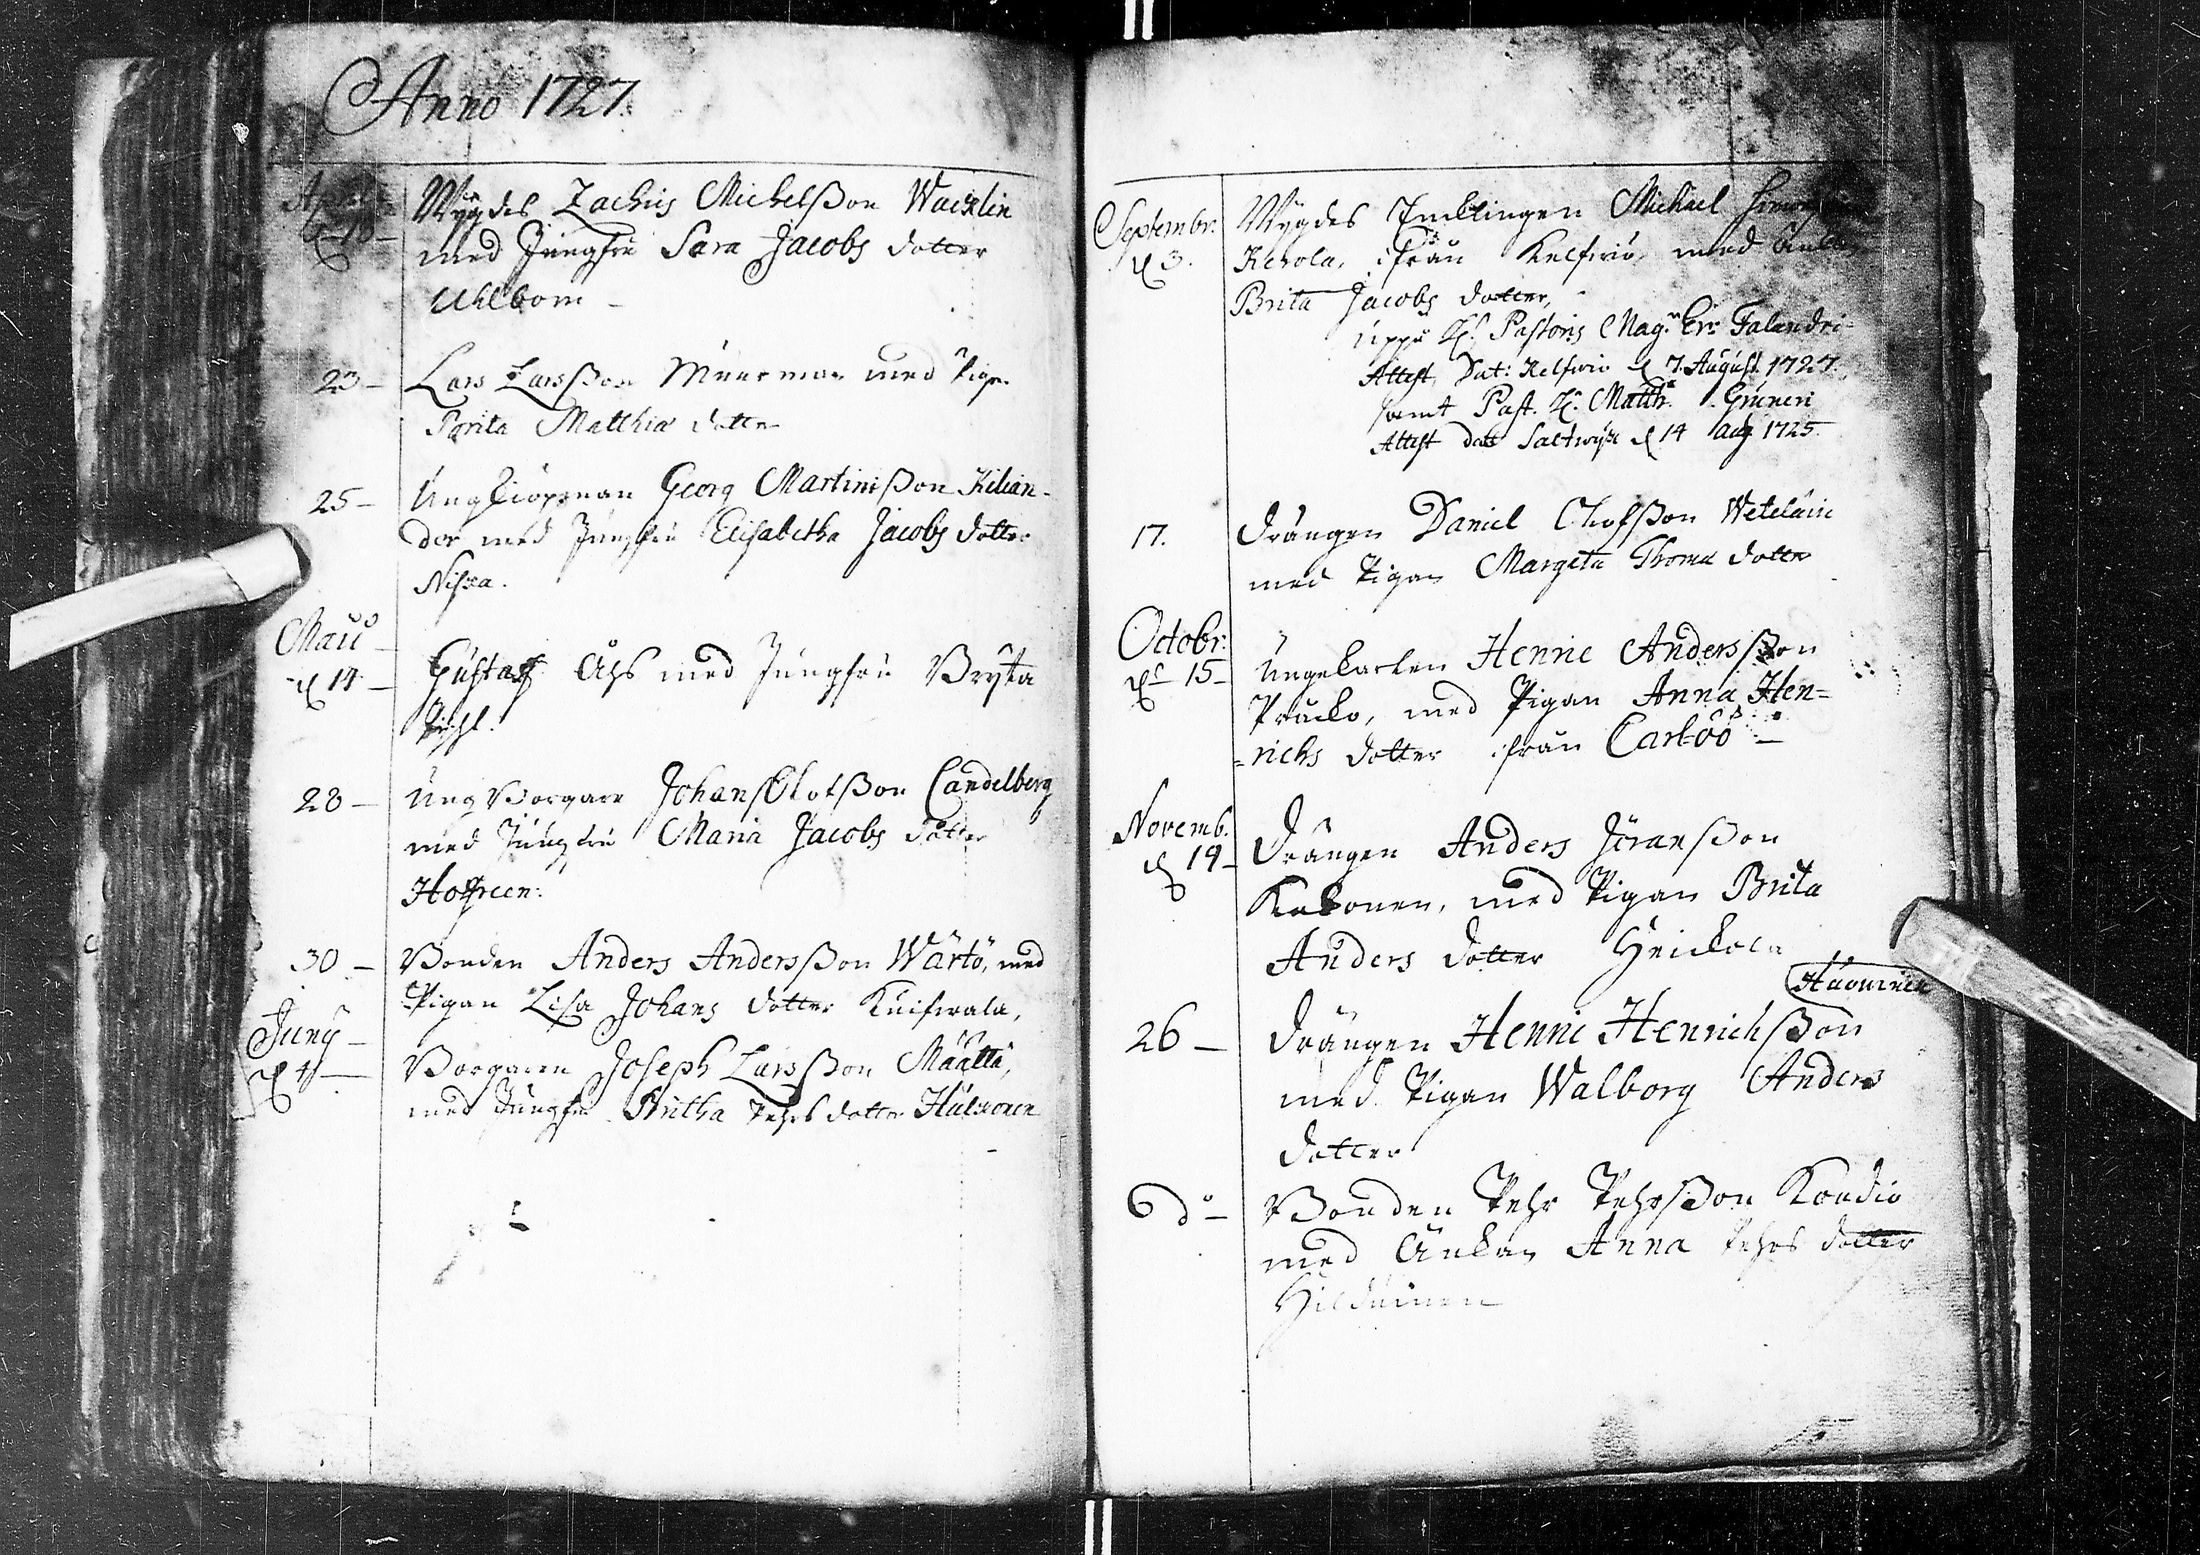 Anno 1727.
April
d 10 – Wygdes Zachris Michelßon Wacklin
med Jungfru Sara Jacobs dotter
Uhlbom –
23 – Lars Larsßon Muurman med Pigan
Brita Matthiæ dotter
25 – Ung Kiöpman Georg Martinißon Kilian-
der med Jungfru Elisabetha Jacobs dotter
Niska.
Maii –
d 14 – Gustaf Åhs med Jungfru Bryta
Pihl.
28 – Ung Borgare Johan Olofßon Candelberg
med Jungfru Maria Jacobs dotter
Hofreen.
30 – Bonden Anders Andersßon Wärtö, med
Pigan Lisa Johans dotter Kuiswala,
Junij –
d 4 – Borgaren Joseph Larsßon Määttä,
med Jungfru Britha Pehrs dotter Hulkonen
Septembr:
d 3. Wygdes Michael
från Kelfwiå, med
Brita Jacobs dotter,
uppå H. Pastoris Mag. Er: Falandri
Attest, Dat: Kelfwiå d 7. August. 1727.
samt Past. H. Matth. Gruneri
Attest dat Saltwyk d 14 aug. 1725.
17. Drängen Daniel Olofsßon Weteläin
med Pigan Margeta Thomæ dotter
Octobr:
d 15 – Ungkarlen Henric Andersßon
Präcko, med Pigan Anna Hen=
=richs dotter ifrån Carlöö –
Novemb.
d 19 – Drängen Anders Jöranßon
Kakonen, med Pigan Brita
Anders dotter Heickola
26 – Drängen Henric Henrichßon
med Pigan Walborg Anders
dotter
do – Bonden Pehr Pehrsßon Kondio
med Änkan Anna Pehrs dotter
Hilduinen